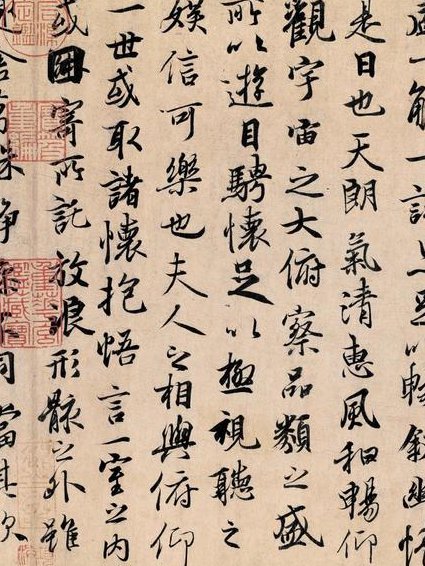 一觴一詠亦足以暢敘幽情
是日也天朗氣清惠風和暢仰
觀宇宙之大俯察品類之盛
所以遊目騁懷足以極視聽之
娛信可樂也夫人之相與俯仰
一世或取諸懷抱悟言一室之內
或因寄所託放浪形骸之外雖
趣舍萬殊靜躁不同當其欣